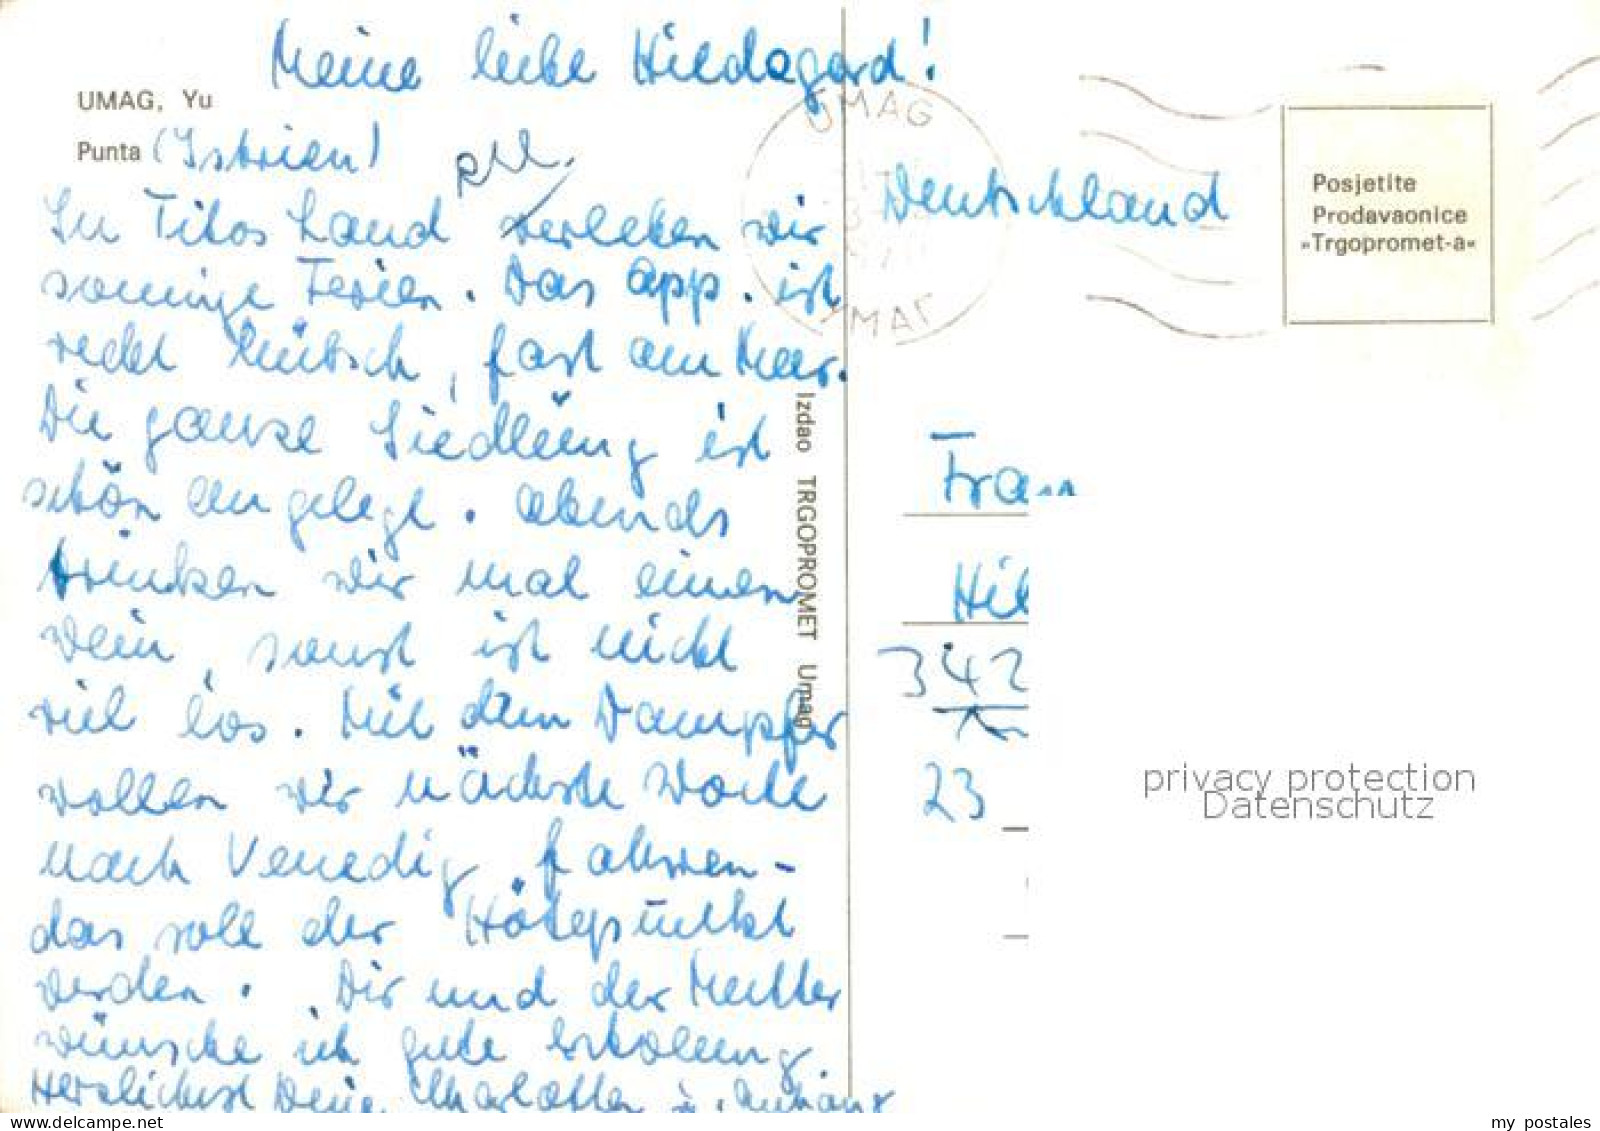 Meine liebe Hildegard!
UMAG, Yu
Punta (Istrien)
In Titos Land verleben wir
sonnige Ferien. Das App. ist
recht hübsch, fast am Meer.
Die ganze Siedlung ist
schön angelegt. Abends
trinken wir mal einen
Wein, sonst ist nicht
viel los. Mit dem Dampfer
wollen wir nächste Woche
nach Venedig fahren-
das soll der Höhepunkt
werden. Dir und der Mutter
wünsche ich gute Erholung.
Herzlichst Deine Charlotte u. Anhang
Izdao TRGOPROMET Umag
UMAG
UMAG
Deutschland
Posjetite
Prodavaonice
»Trgopromet-a«
Frau
Hil
342
23
privacy protection
Datenschutz
my postales